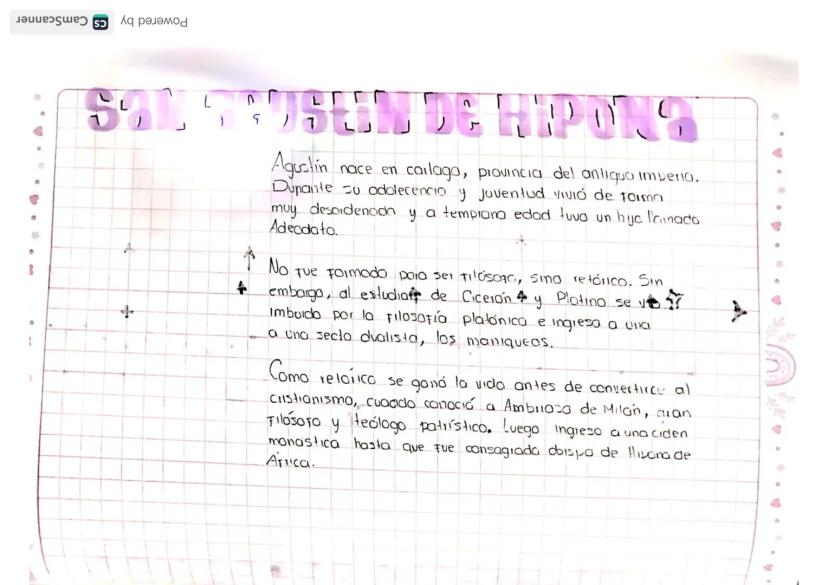 Powered by CS CamScanner
SAN AGUSTIN DE HIPONA
Agustín nace en cartago, provincia del antiguo imperio.
Durante su adolecencia y juventud vivió de forma
muy desordenada y a temprana edad tuvo un hijo llamado
Adeodato.
No fue formado para ser filósofo, sino retórico. Sin
embargo, al estudiar de Cicerón y Plotino se
imbuido por la filosofía platónica e ingreso a una
a una secta dualista, los maniqueos.
Como retórico se ganó la vida antes de convertirse al
cristianismo, cuando conoció a Ambrioso de Milán, gran
filósofo y teólogo patrístico. Luego ingreso a una orden
monastica hasta que fue consagrado obispo de Hipona de
África.